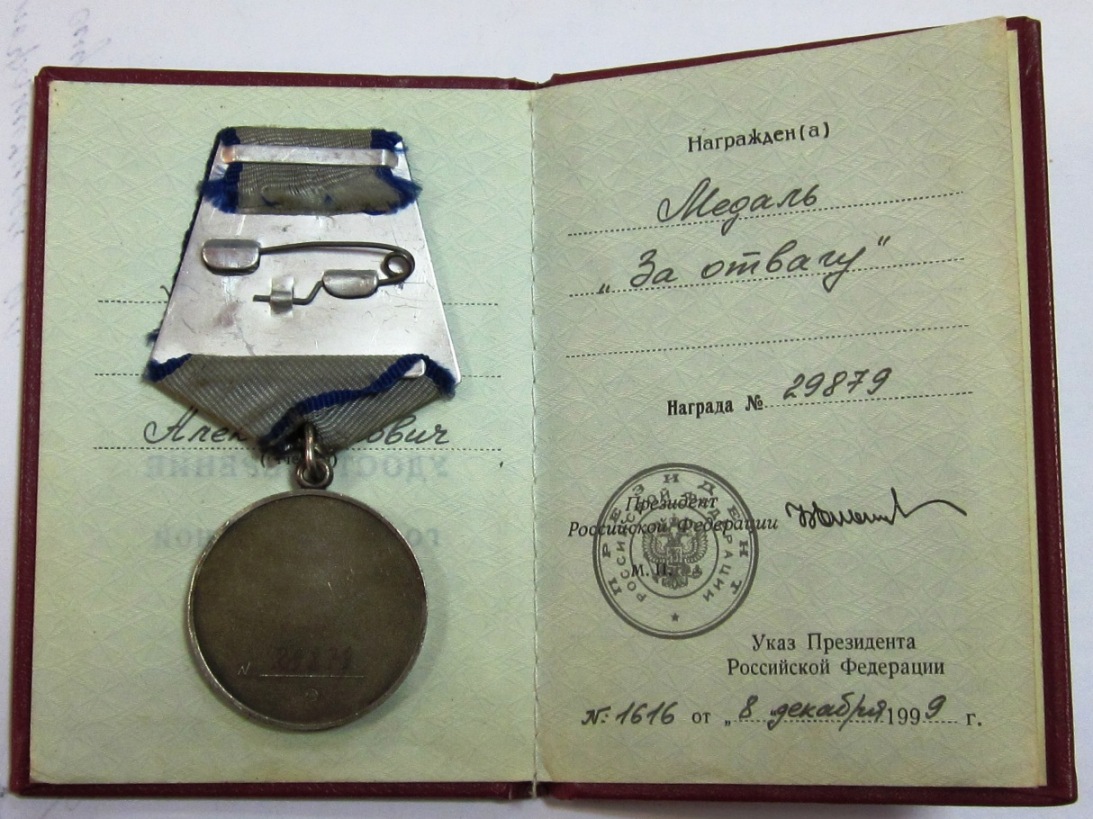 Награжден(а)
Медаль
„За отвагу"
Награда № 29879
Президент
Российской Федерации
М. П.
ПРЕЗИДЕНТ
РОССИЙСКОЙ ФЕДЕРАЦИИ
Указ Президента
Российской Федерации
№ 1616 от „8" декабря 1999 г.
N